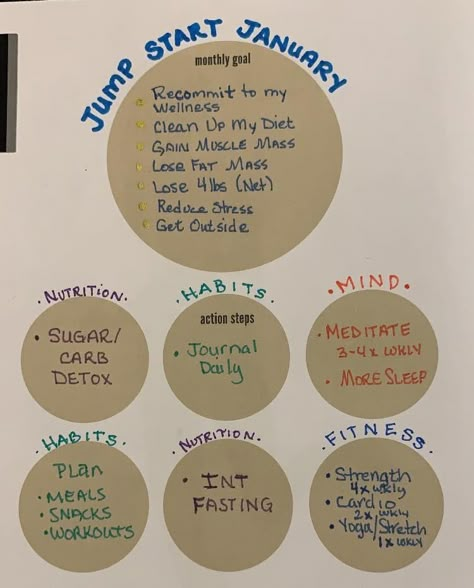 JUMP START JANUARY
monthly goal
Recommit to my
Wellness
Clean Up My Diet
GAIN MUSCLE MASS
LOSE FAT MASS
LOSE 4lbs (Net)
Reduce Stress
Get Outside
• NUTRITION •
• SUGAR/
CARB
DETOX
• HABITS •
action steps
• Journal
Daily
• MIND •
• MEDITATE
3-4x WKLY
• MORE SLEEP
• HABITS •
Plan
• MEALS
• SNACKS
• WORKOUTS
• NUTRITION •
• INT
FASTING
• FITNESS •
• Strength
4x wkly
• Cardio
2x wkly
• Yoga/Stretch
1x WKLY